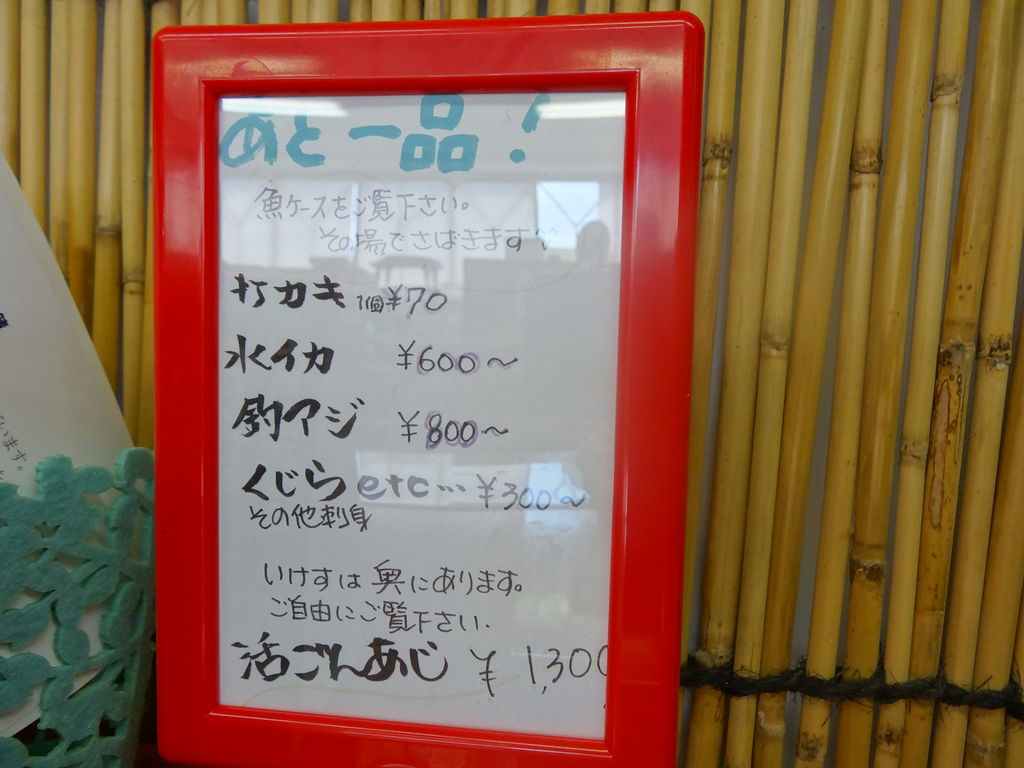 あと一品!
魚ケースをご覧下さい。
その場でさばきます♡
打カキ 1個¥70
水イカ ¥600〜
釣アジ ¥800〜
くじら etc… ¥300〜
その他刺身
いけすは奥にあります。
ご自由にご覧下さい.
活ごんあじ ¥1,300
います。